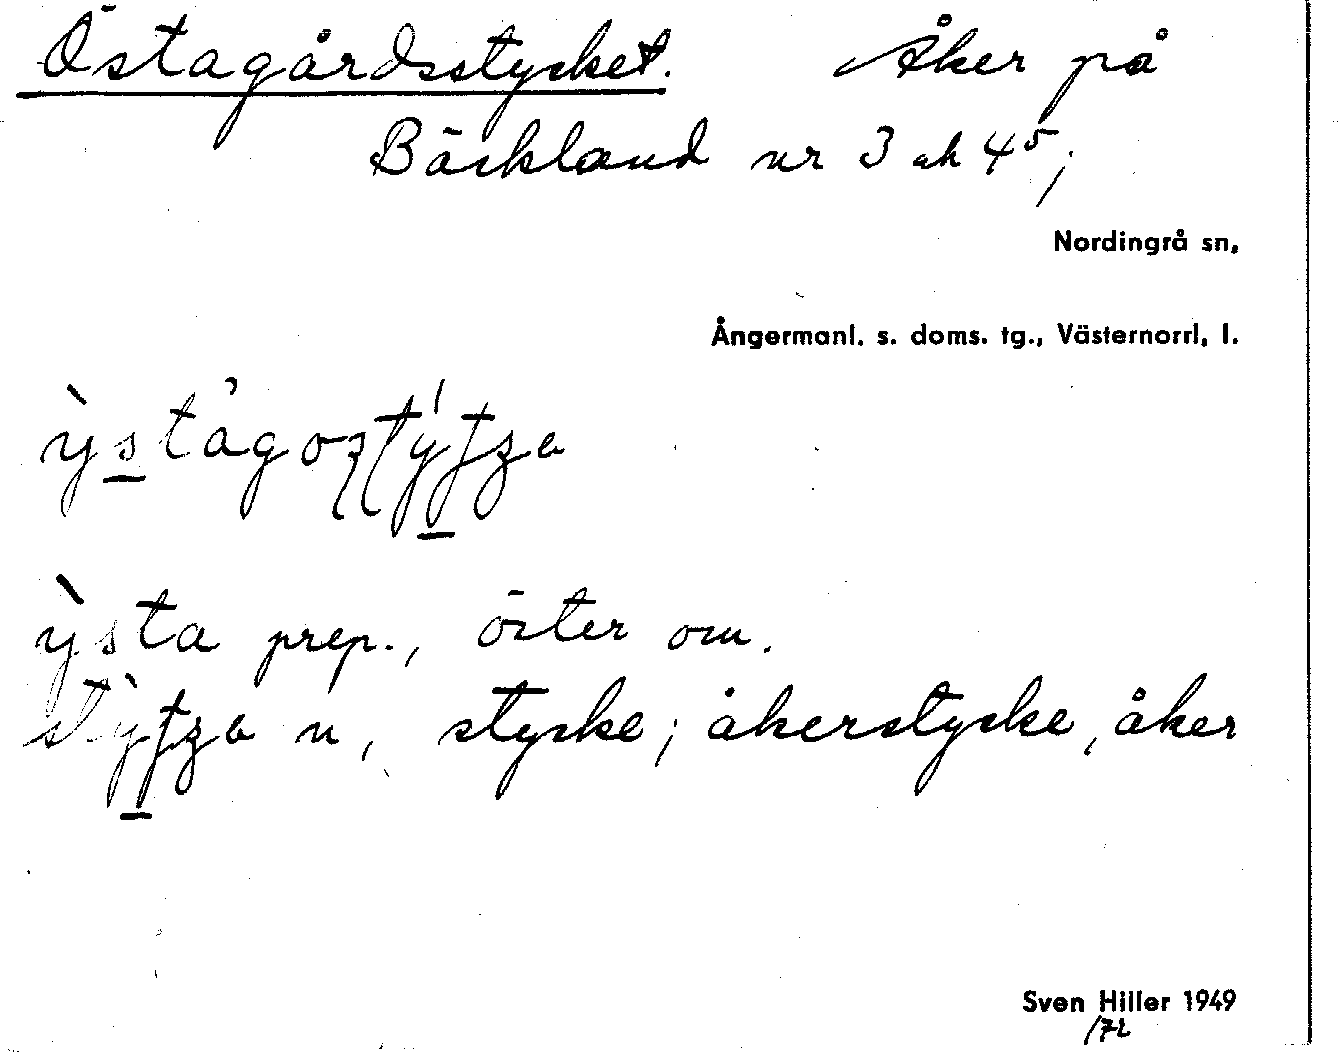 Östagårdsstycket. Åker på
Bäckland nr 3 och 4⁵;
Nordingrå sn,
Ångermanl. s. doms. tg., Västernorrl. l.
ysta prep., öster om.
n, stycke; åkerstycke, åker
Sven Hiller 1949
/72